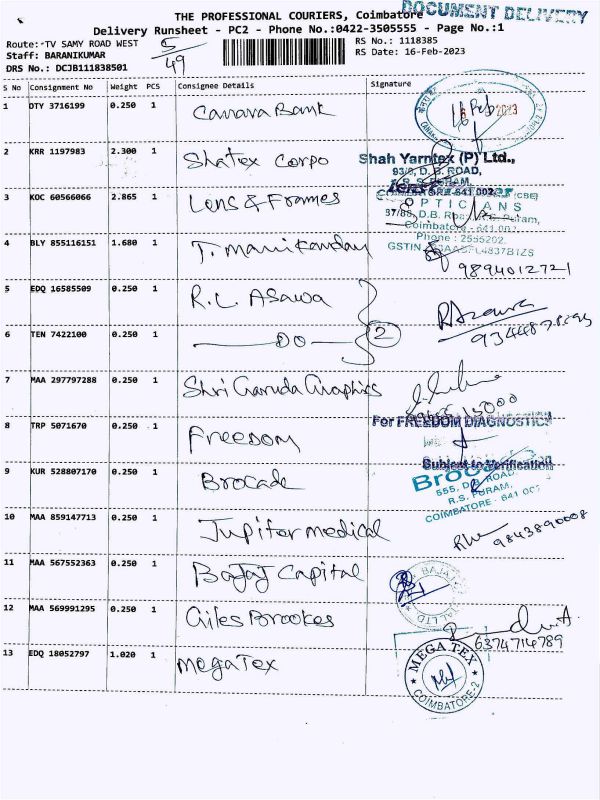 DOCUMENT DELIVERY
THE PROFESSIONAL COURIERS, Coimbatore
Delivery Runsheet - PC2 - Phone No.:0422-3505555 - Page No.:1
Route:-TV SAMY ROAD WEST 5/49 RS No.: 1118385
Staff: BARANIKUMAR RS Date: 16-Feb-2023
DRS No.: DCJB111838501
S No Consignment No Weight PCS Consignee Details Signature
1 DTY 3716199 0.250 1 Canara Bank
16 Feb 2023
2 KRR 1197983 2.300 1 Shatex Corpo
Shah Yarntex (P) Ltd.,
93/9, D. B. ROAD,
R. S. PURAM,
COIMBATORE-641 002
3 KOC 60566066 2.865 1 Lens & Frames
(CBE)
OPTICIANS
37/88, D.B. Road, R.S. Puram,
Coimbatore - 641 002
Phone : 2555202
GSTIN
4 BLY 855116151 1.680 1 T. Manikandan
9894012721
5 EDQ 16585509 0.250 1 R.L. Asawa
6 TEN 7422100 0.250 1 DO 2
7 MAA 297797288 0.250 1 Shri Garuda Graphics
8 TRP 5071670 0.250 1 Freedom
For FREEDOM DIAGNOSTICS
Subject to Verification
9 KUR 528807170 0.250 1 Brocade
Brocade
555, D.B. ROAD
R.S. PURAM,
COIMBATORE - 641 002
10 MAA 859147713 0.250 1 Jupiter medical
9843890008
11 MAA 567552363 0.250 1 Bajaj Capital
12 MAA 569991295 0.250 1 Giles Brookes
6374714789
13 EDQ 18052797 1.020 1 MegaTex
MEGA TEX
COIMBATORE-2